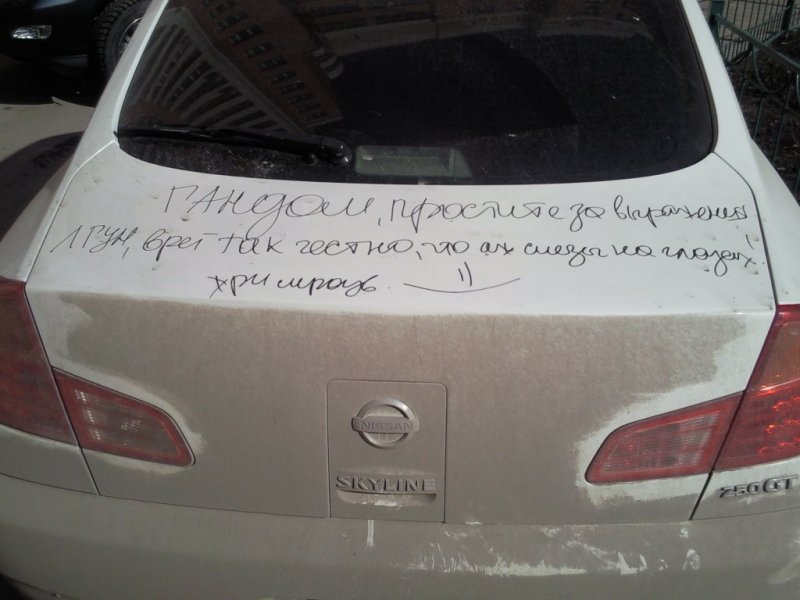 ГАНДОМ, простите за выражения
ЛГУН, врет так честно, что аж слезы на глазах.
мразь
NISSAN
SKYLINE
250GT